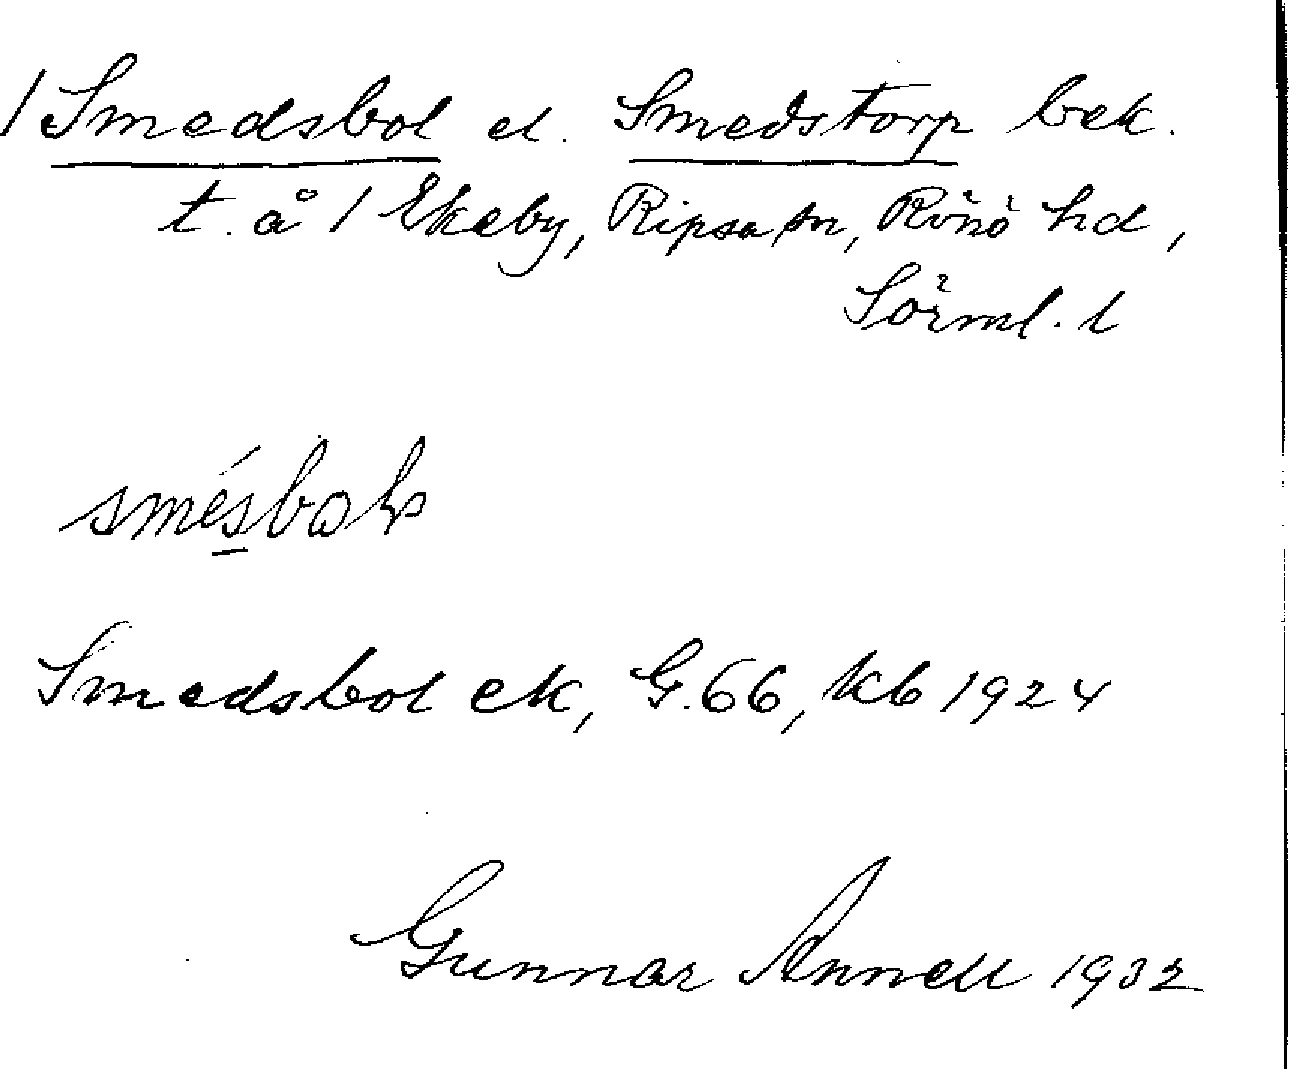 / Smedsbol el. Smedstorp bek.
t. å / Ekeby, Ripsa sn, Rönö hd,
Sörml. l
Smedsbol ek, G.66, kb 1924
Gunnar Annell 1932